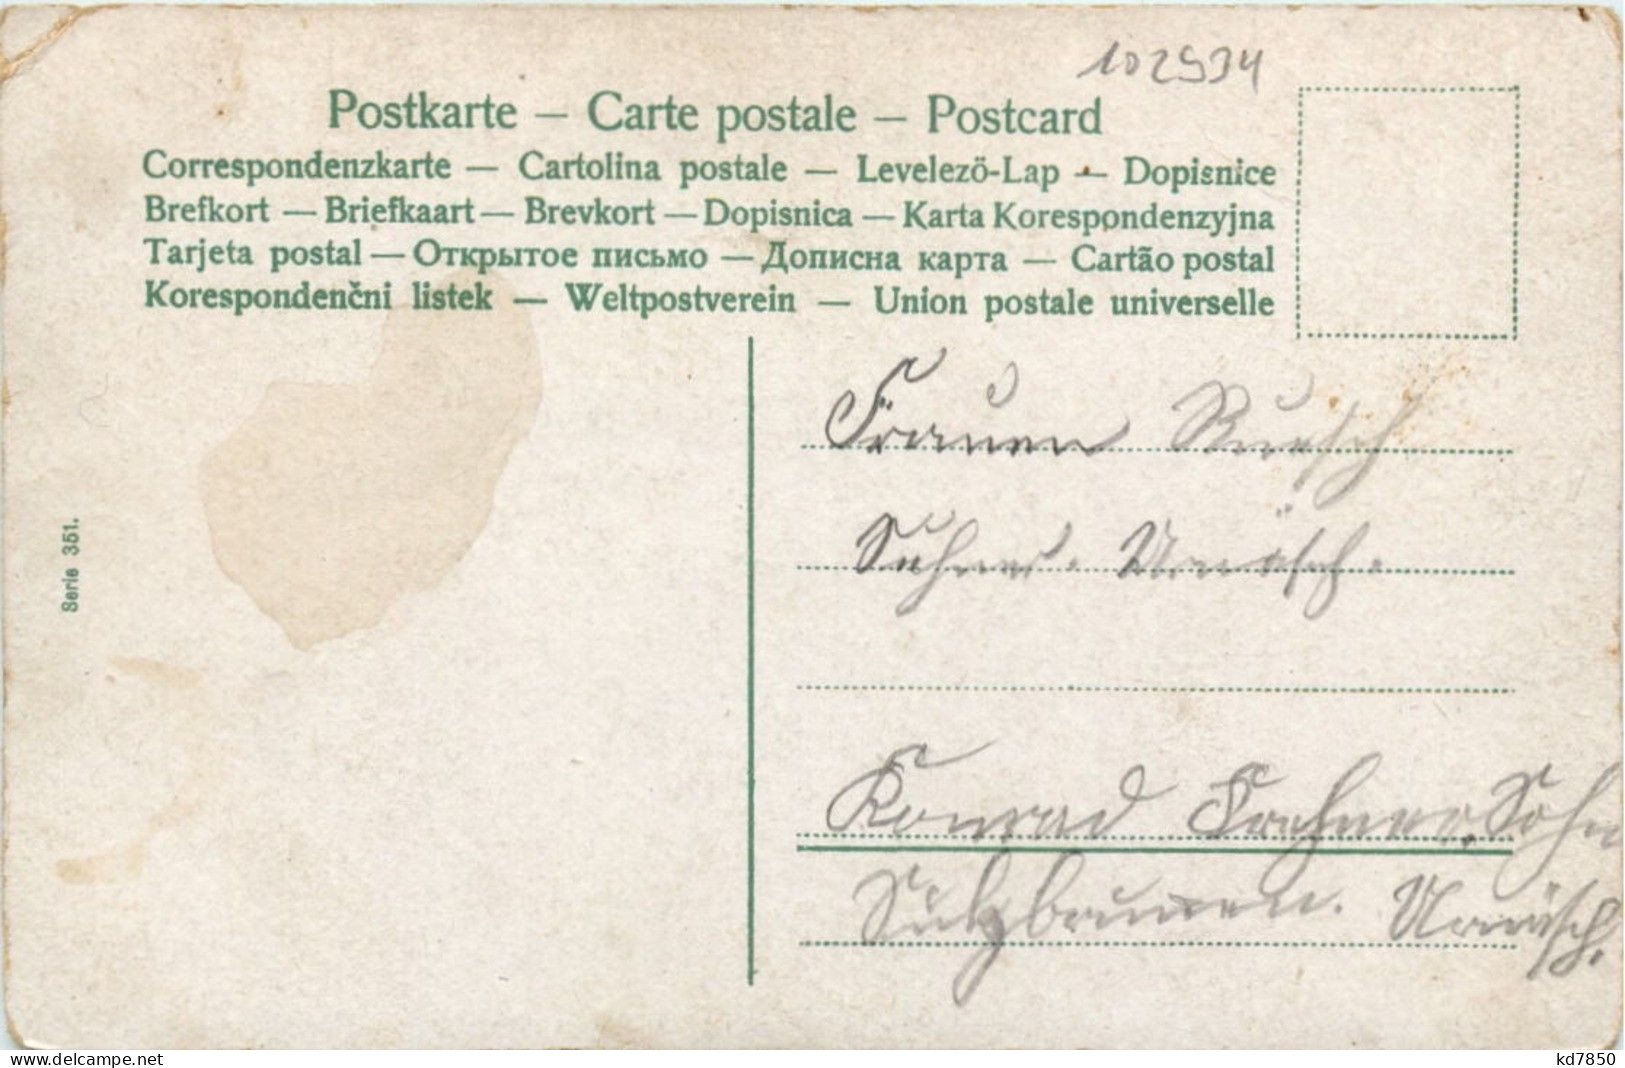 102934
Postkarte — Carte postale — Postcard
Correspondenzkarte — Cartolina postale — Levelező-Lap — Dopisnice
Brefkort — Briefkaart — Brevkort — Dopisnica — Karta Korespondenzyjna
Tarjeta postal — Открытое письмо — Дописна карта — Cartão postal
Korespondenčni listek — Weltpostverein — Union postale universelle
Serie 351.
Frauen
Urnäsch.
Konrad Sohn
Sülzbrunnen. Urnäsch.
www.delcampe.net
kd7850